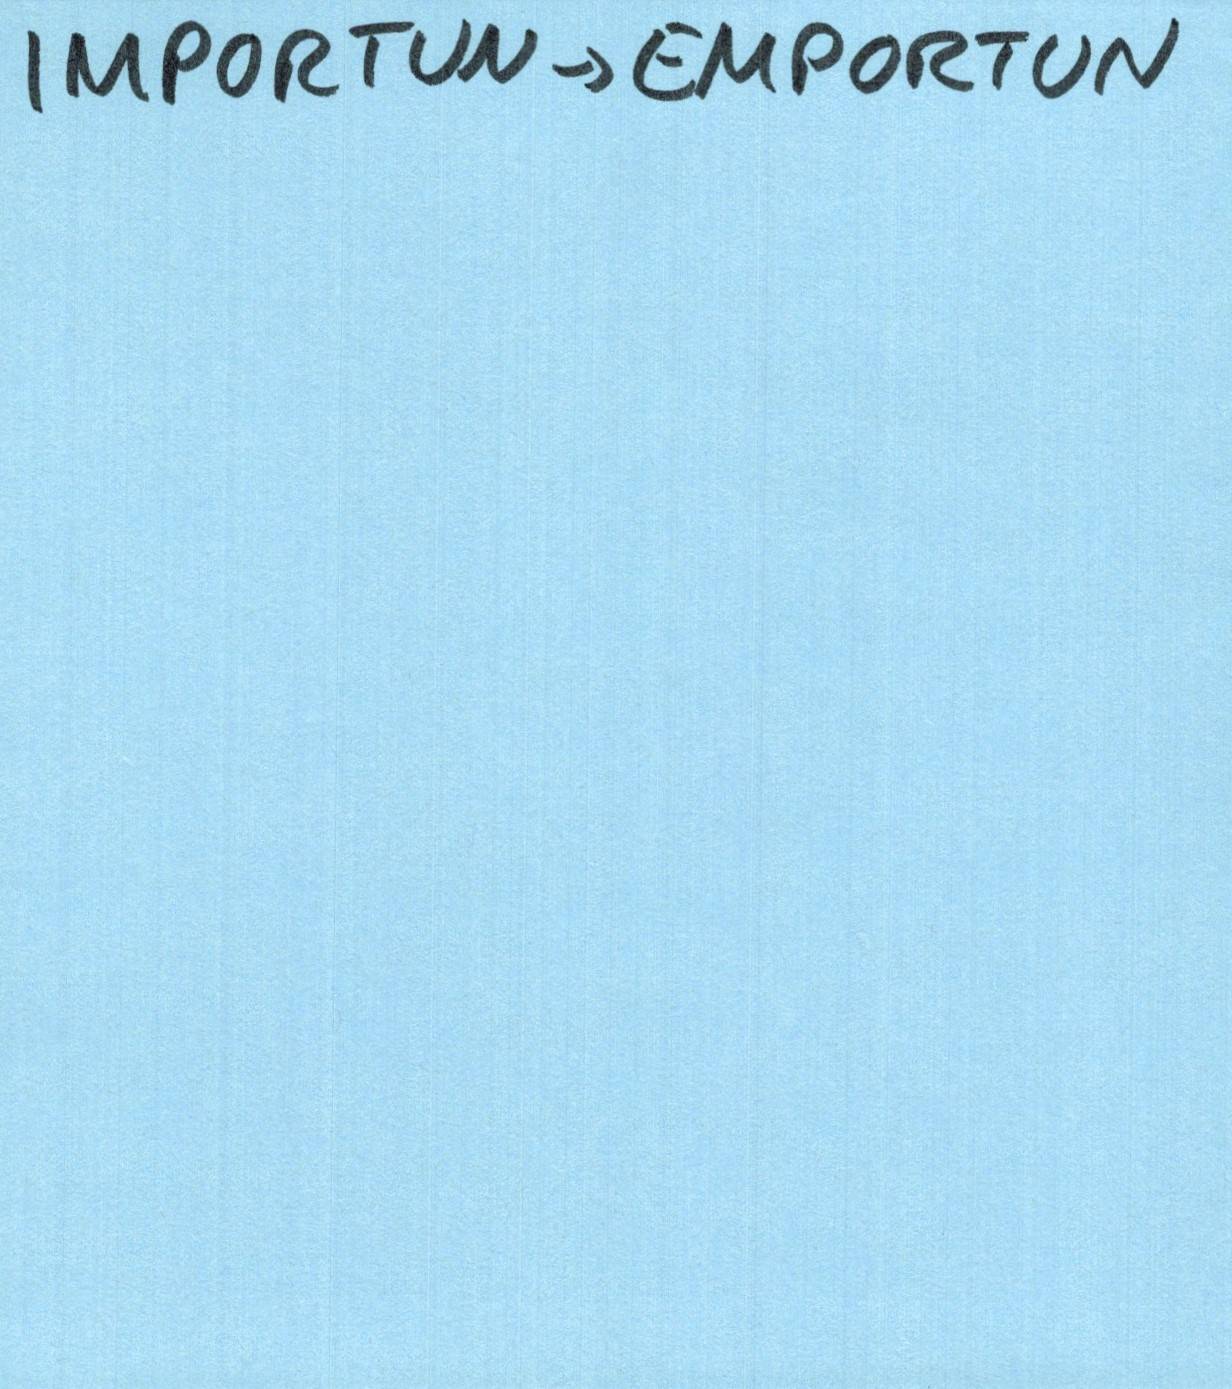 IMPORTUN → EMPORTUN